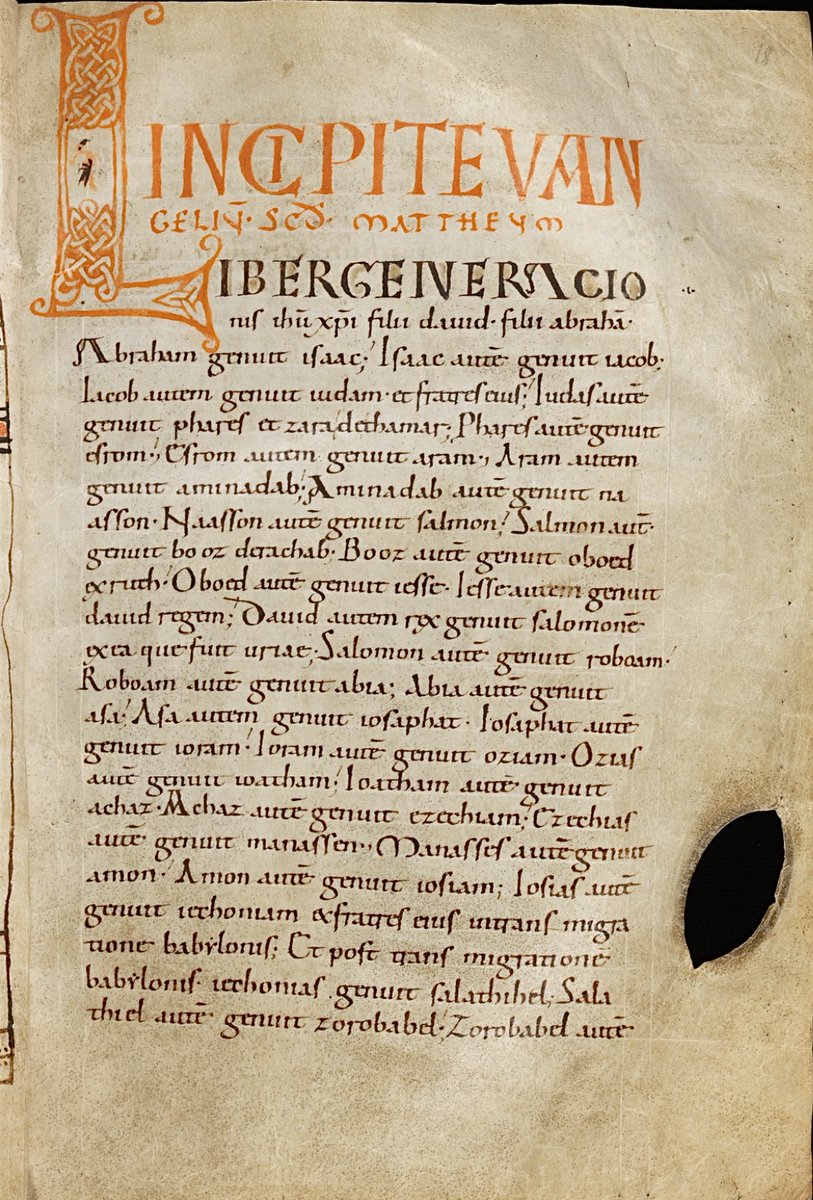 18
INCIPIT EVAN
GELIŪ· SCḌ· MATTHEUM
LIBER GENERACIO
nis ihū xp̄i filii david· filii abrahā·
Abraham genuit isaac; Isaac autē genuit iacob;
Iacob autem genuit iudam· et fratres eius; Iudas autē
genuit phares et zara de thamar; Phares autē genuit
esrom·; Esrom autem genuit aram·, Aram autem
genuit aminadab; Aminadab autē genuit na
asson· Naasson autē genuit salmon; Salmon aut̄·
genuit booz de rachab· Booz autē genuit oboed
ex ruth· Oboed autē genuit iesse· Iesse autem genuit
david regem; David autem rex genuit salomonē
ex ea que fuit uriae; Salomon autē genuit roboam·
Roboam autē genuit abia; Abia autē genuit
asa; Asa autem genuit iosaphat· Iosaphat autē
genuit ioram· Ioram autē genuit oziam· Ozias
autē genuit ioatham; Ioatham autē genuit
achaz· Achaz autē genuit ezechiam; Ezechias
autē genuit manassen·, Manasses autē genuit
amon· Amon autē genuit iosiam; Iosias autē
genuit iechoniam & fratres eius in trans migra
tione babẏlonis; Et post trans migratione
babẏlonis· iechonias genuit salathihel; Sala
thiel autē genuit zorobabel· Zorobabel autē